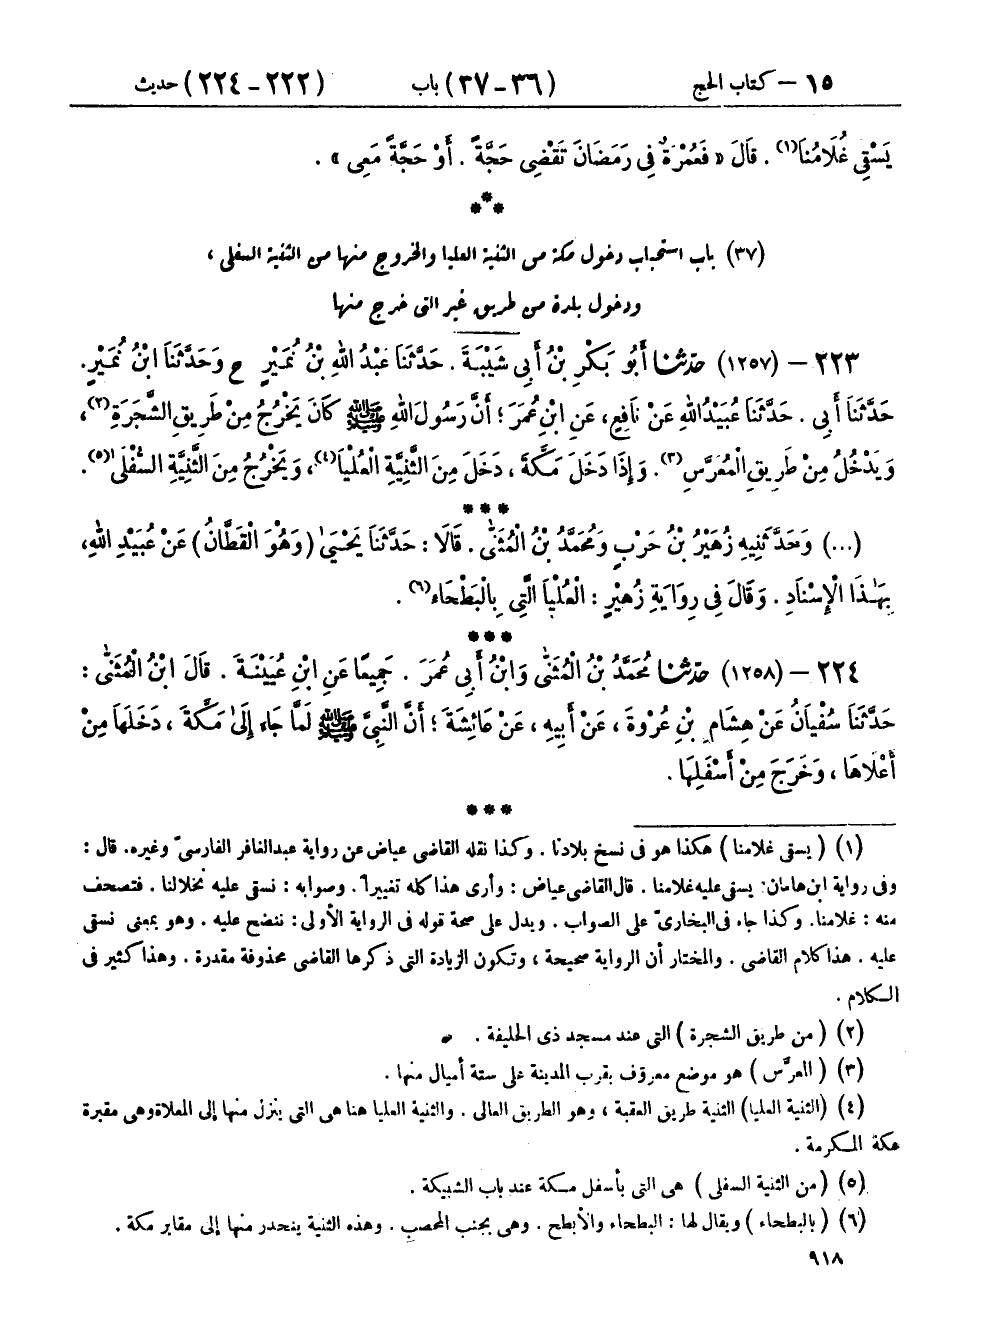 ١٥ – كتاب الحج (٣٦ – ٣٧) باب (٢٢٢ – ٢٢٤) حديث
يَسْقِي غُلَامُنَا(١) . قَالَ « فَعُمْرَةٌ فِي رَمَضَانَ تَقْضِي حَجَّةً . أَوْ حَجَّةً مَعِي » .
***
(٣٧) باب استحباب دخول مكة من الثنية العليا والخروج منها من الثنية السفلى ،
ودخول بلدة من طريق غير التى خرج منها
٢٢٣ – (١٢٥٧) حدّثنا أَبُو بَكْرِ بْنُ أَبِي شَيْبَةَ . حَدَّثَنَا عَبْدُ اللهِ بْنُ نُمَيْرٍ ح وَحَدَّثَنَا ابْنُ نُمَيْرٍ.
حَدَّثَنَا أَبِي . حَدَّثَنَا عُبَيْدُاللهِ عَنْ نَافِعٍ، عَنِ ابْنِ عُمَرَ ؛ أَنَّ رَسُولَ اللهِ ﷺ كَانَ يَخْرُجُ مِنْ طَرِيقِ الشَّجَرَةِ(٢)،
وَيَدْخُلُ مِنْ طَرِيقِ الْمُعَرَّسِ(٣). وَإِذَا دَخَلَ مَكَّةَ ، دَخَلَ مِنَ الثَّنِيَّةِ الْعُلْيَا(٤)، وَيَخْرُجُ مِنَ الثَّنِيَّةِ السُّفْلَى(٥).
***
(...) وَحَدَّثَنِيهِ زُهَيْرُ بْنُ حَرْبٍ وَمُحَمَّدُ بْنُ الْمُثَنَّى . قَالَا : حَدَّثَنَا يَحْيَىٰ (وَهُوَ الْقَطَّانُ) عَنْ عُبَيْدِ اللهِ،
بِهَـٰذَا الْإِسْنَادِ . وَقَالَ فِي رِوَايَةِ زُهَيْرٍ : الْعُلْيَا الَّتِي بِالْبَطْحَاءِ(٦) .
***
٢٢٤ – (١٢٥٨) حدّثنا مُحَمَّدُ بْنُ الْمُثَنَّى وَابْنُ أَبِي عُمَرَ . جَمِيعًا عَنِ ابْنِ عُيَيْنَةَ . قَالَ ابْنُ الْمُثَنَّى :
حَدَّثَنَا سُفْيَانُ عَنْ هِشَامِ بْنِ عُرْوَةَ ، عَنْ أَبِيهِ ، عَنْ عَائِشَةَ ؛ أَنَّ النَّبِيَّ ﷺ لَمَّا جَاءَ إِلَىٰ مَكَّةَ ، دَخَلَهَا مِنْ
أَعْلَاهَا ، وَخَرَجَ مِنْ أَسْفَلِهَا .
***
(١) ( يسقى غلامنا ) هكذا هو فى نسخ بلادنا . وكذا نقله القاضى عياض عن رواية عبدالغافر الفارسىّ وغيره. قال :
وفى رواية ابن هامان: يسقى عليه غلامنا . قال القاضى عياض : وأرى هذا كله تغييرا . وصوابه : نسقى عليه نخلا لنا . فتصحف
منه : غلامنا. وكذا جاء فى البخارىّ على الصواب . ويدل على صحة قوله فى الرواية الأولى: ننضح عليه . وهو بمعنى نسقى
عليه . هذا كلام القاضى . والمختار أن الرواية صحيحة ، وتكون الزيادة التى ذكرها القاضى محذوفة مقدرة . وهذا كثير فى
الكلام .
(٢) ( من طريق الشجرة ) التى عند مسجد ذى الحليفة .
(٣) ( المعرَّس ) هو موضع معروف بقرب المدينة على ستة أميال منها .
(٤) (الثنية العليا) الثنية طريق العقبة ، وهو الطريق العالى . والثنية العليا هنا هى التى ينزل منها إلى المعلاة وهى مقبرة
مكة المكرمة .
(٥) (من الثنية السفلى ) هى التى بأسفل مكة عند باب الشبيكة .
(٦) ( بالبطحاء ) ويقال لها : البطحاء والأبطح . وهى بجنب المحصب . وهذه الثنية ينحدر منها إلى مقابر مكة .
٩١٨